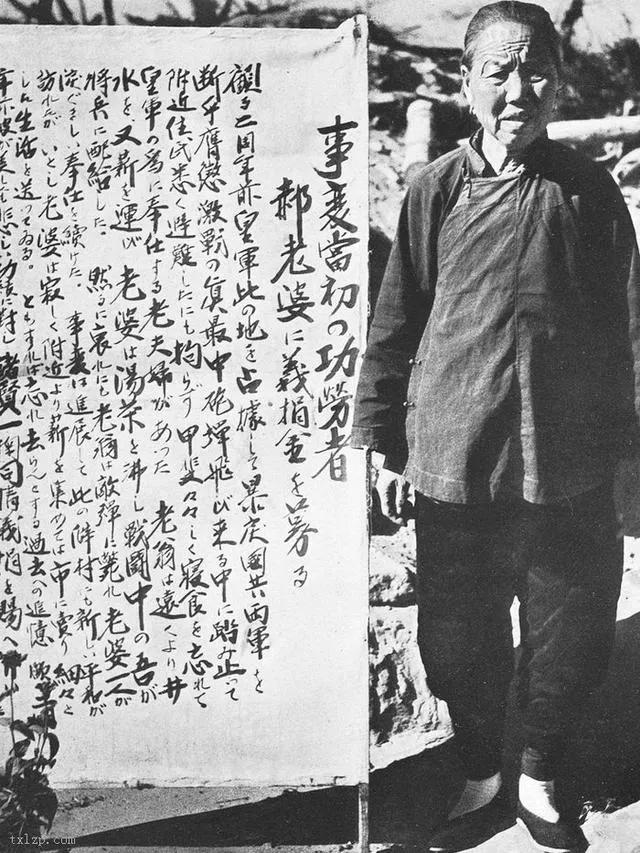 事変當初の功勞者
郝老婆に義捐金を募る
顧る二周年前皇軍此の地を占據して暴戻國共両軍を
断乎膺懲激戦の真最中砲弾飛び来る中に踏み止って
附近住民悉く避難したにも拘らず甲斐々々しく寝食を忘れて
皇軍の為に奉仕する老夫婦があった 老翁は遠くより井
水を又薪を運び 老婆は湯茶を沸し戦闘中の吾が
将兵に配給した。 然るに哀れにも老翁は敵弾に斃れ老婆一人が
涙ぐましい奉仕を續けた。 事変は進展して此の僻村にも新しい平和が
訪れたが いとし老婆は寂しく附近より薪を集めては市に賣り細々と
しい生活を送ってゐる。 ともすれば忘れ去らんとする過去への追憶
美しくも悲しい功績に対し諸賢一掬同情義捐を賜へ
txlzp.com